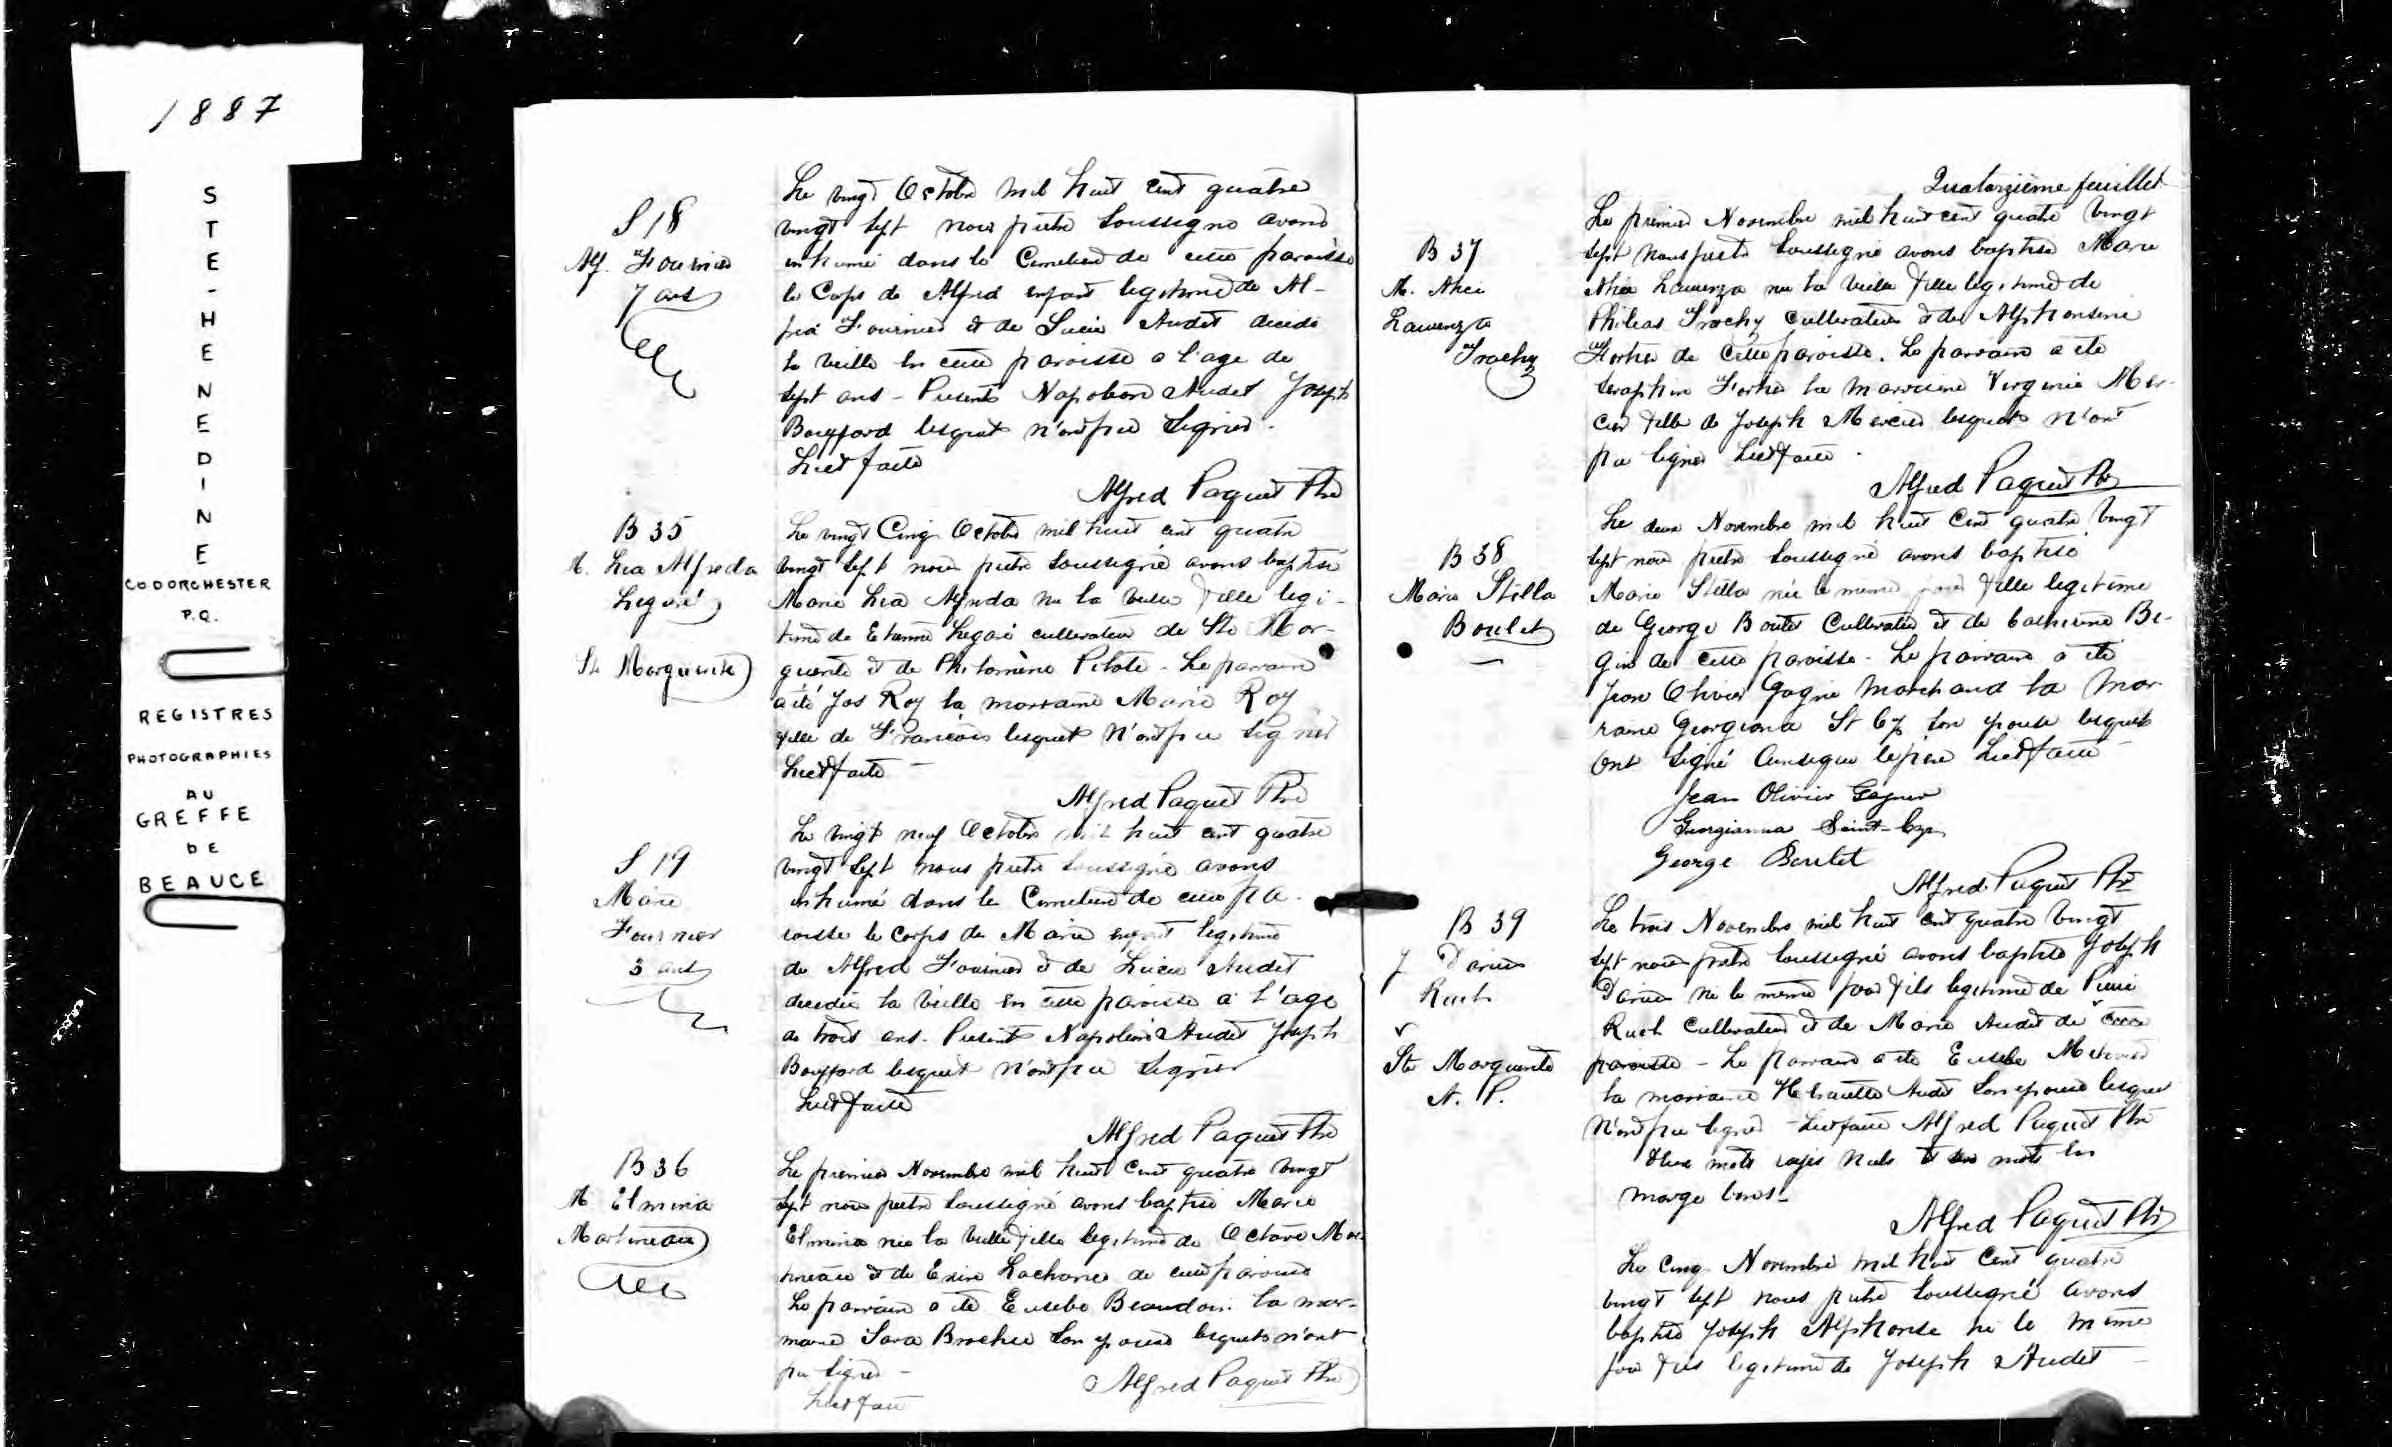 1887
STE-HENEDINE
CO DORCHESTER
P.Q.
REGISTRES
PHOTOGRAPHIES
AU
GREFFE
DE
BEAUCE
S 18
Alf. Fournier
7 ans
Le vingt Octobre mil huit cent quatre
vingt sept nous prêtre soussigné avons
inhumé dans le Cimetière de cette paroisse
le Corps de Alfred enfant legitime de Al-
fred Fournier et de Lucie Audet decedé
la veille en cette paroisse a l'age de
sept ans - Presents Napoleon Audet Joseph
lesquels n'ont pu signer.
Lect faite
Alfred Paquet Ptre
B 35
M. Lea Alfreda
Legaré
Ste Marguerite
Le vingt Cinq Octobre mil huit cent quatre
vingt sept nous prêtre soussigné avons baptisé
Marie Lea Alfreda née la veille fille legi-
time de Etienne Legaré cultivateur de Ste Mar-
guerite et de Philomène Pilote - Le parrain
a été Jos Roy la marraine Marie Roy
fille de François lesquels n'ont pu signer
Lect faite -
Alfred Paquet Ptre
S 19
Marie
Fournier
3 ans
Le vingt neuf Octobre mil huit cent quatre
vingt sept nous prêtre soussigné avons
inhumé dans le Cimetière de cette pa-
roisse le corps de Marie enfant legitime
de Alfred Fournier et de Lucie Audet
decedée la veille en cette paroisse a l'age
de trois ans. Presents Napoleon Audet Joseph
lesquels n'ont pu signer
Lect faite
Alfred Paquet Ptre
B 36
M Elmina
Martineau
Le premier Novembre mil huit cent quatre vingt
sept nous prêtre soussigné avons baptisé Marie
Elmina née la veille fille legitime de Octave Mar-
tineau et de Exire Lachance de cette paroisse
Le parrain a été Eusebe Beaudoin la mar-
raine Sara Brochu son epouse lesquels n'ont
pu signer -
Lect faite
Alfred Paquet Ptre
Quatorzième feuillet
B 37
M.
Laurenza
Trachy
Le premier Novembre mil huit cent quatre vingt
sept nous prêtre soussigné avons baptisé Marie
Laurenza née la veille fille legitime de
Phileas Trachy Cultivateur et de Alphonsine
Fortier de cette paroisse. Le parrain a été
Seraphin Fortier la marraine Virginie Mer-
cier fille de Joseph Mercier lesquels n'ont
pu signer Lect faite.
Alfred Paquet Ptre
B 38
Marie Stella
Boulet
Le deux Novembre mil huit Cent quatre vingt
sept nous prêtre soussigné avons baptisé
Marie Stella née le meme jour fille legitime
de George Boulet Cultivateur et de Catherine Be-
gin de cette paroisse - Le parrain a été
Jean Olivier Gagné Marchand la mar-
raine Georgiana St Cyr son epouse lesquels
ont signé ainsique le père Lect faite -
Jean Olivier Gagner
Georgianna Saint-Cyr
George Boulet
Alfred Paquet Ptre
B 39
J Darius
Ruel
v
Ste Marguerite
A. P.
Le trois Novembre mil huit cent quatre vingt
sept nous prêtre soussigné avons baptisé Joseph
Darius né le meme jour fils legitime de Pierre
Ruel Cultivateur et de Marie Audet de v cette
paroisse - Le parrain a été Eusebe
la marraine Henriette Audet son epouse lesquels
n'ont pu signer - Lect faite Alfred Paquet Ptre
deux mots rayés nuls et deux mots en
marge bons -
Alfred Paquet Ptre
Le Cinq Novembre mil huit Cent quatre
vingt sept nous prêtre soussigné avons
baptisé Joseph Alphonse né le même
jour fils legitime de Joseph Audet -